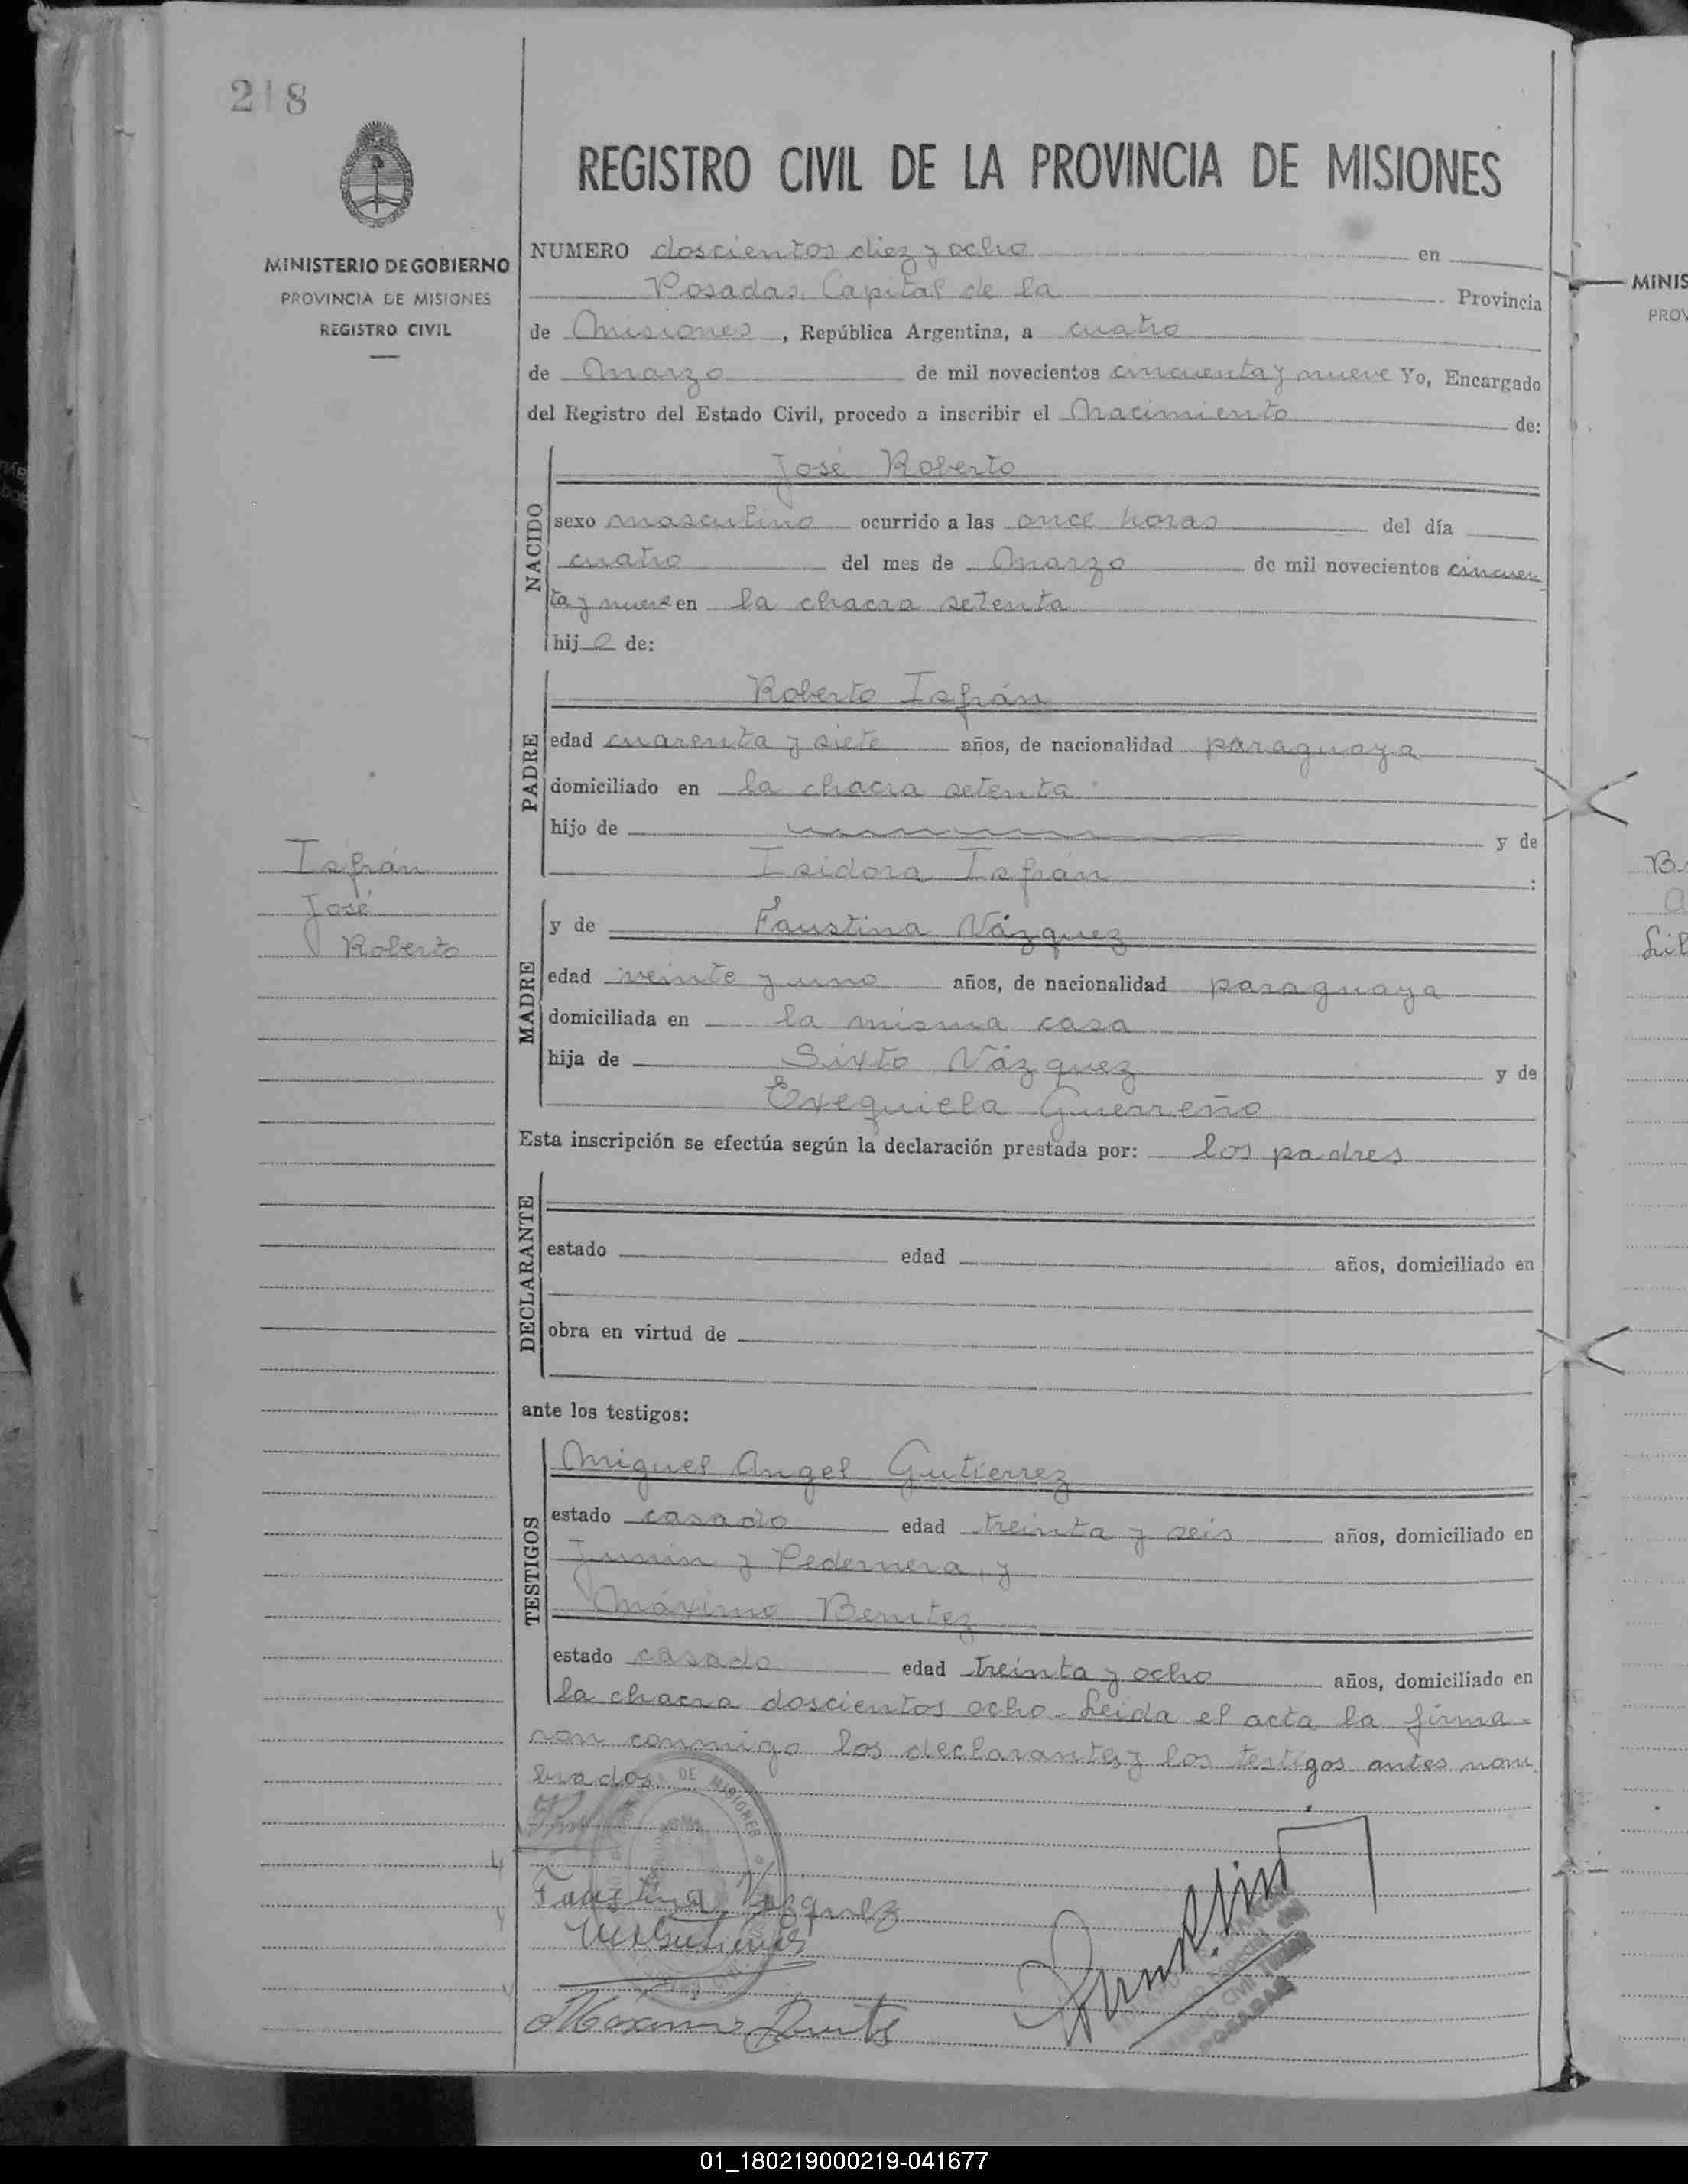 218
REGISTRO CIVIL DE LA PROVINCIA DE MISIONES
MINISTERIO DE GOBIERNO
PROVINCIA DE MISIONES
REGISTRO CIVIL
NUMERO doscientos diez y ocho en
Posadas, Capital de la Provincia
de Misiones, República Argentina, a cuatro
de Marzo de mil novecientos cincuenta y nueve Yo, Encargado
del Registro del Estado Civil, procedo a inscribir el Nacimiento de:
NACIDO
José Roberto
sexo masculino ocurrido a las once horas del día
cuatro del mes de Marzo de mil novecientos cincuen
ta y nueve en la chacra setenta
hijo de:
PADRE
Roberto Isfrán
edad cuarenta y siete años, de nacionalidad paraguaya
domiciliado en la chacra setenta
hijo de y de
Isidora Isfrán :
Isfrán
José
Roberto
MADRE
y de Faustina Vázquez
edad veinte y uno años, de nacionalidad paraguaya
domiciliada en la misma casa
hija de Sixto Vázquez y de
Exequiela Guerreño
Esta inscripción se efectúa según la declaración prestada por: los padres
DECLARANTE
estado edad años, domiciliado en
obra en virtud de
ante los testigos:
TESTIGOS
Miguel Angel Gutierrez
estado casado edad treinta y seis años, domiciliado en
Junín y Pedernera, y
Máximo Benitez
estado casado edad treinta y ocho años, domiciliado en
la chacra doscientos ocho. Leida el acta la firma-
ron conmigo los declarantes y los testigos antes nom
brados.
DE MISIONES
Faustina Vazquez
POSADAS
MINIS
PROV
01_180219000219-041677